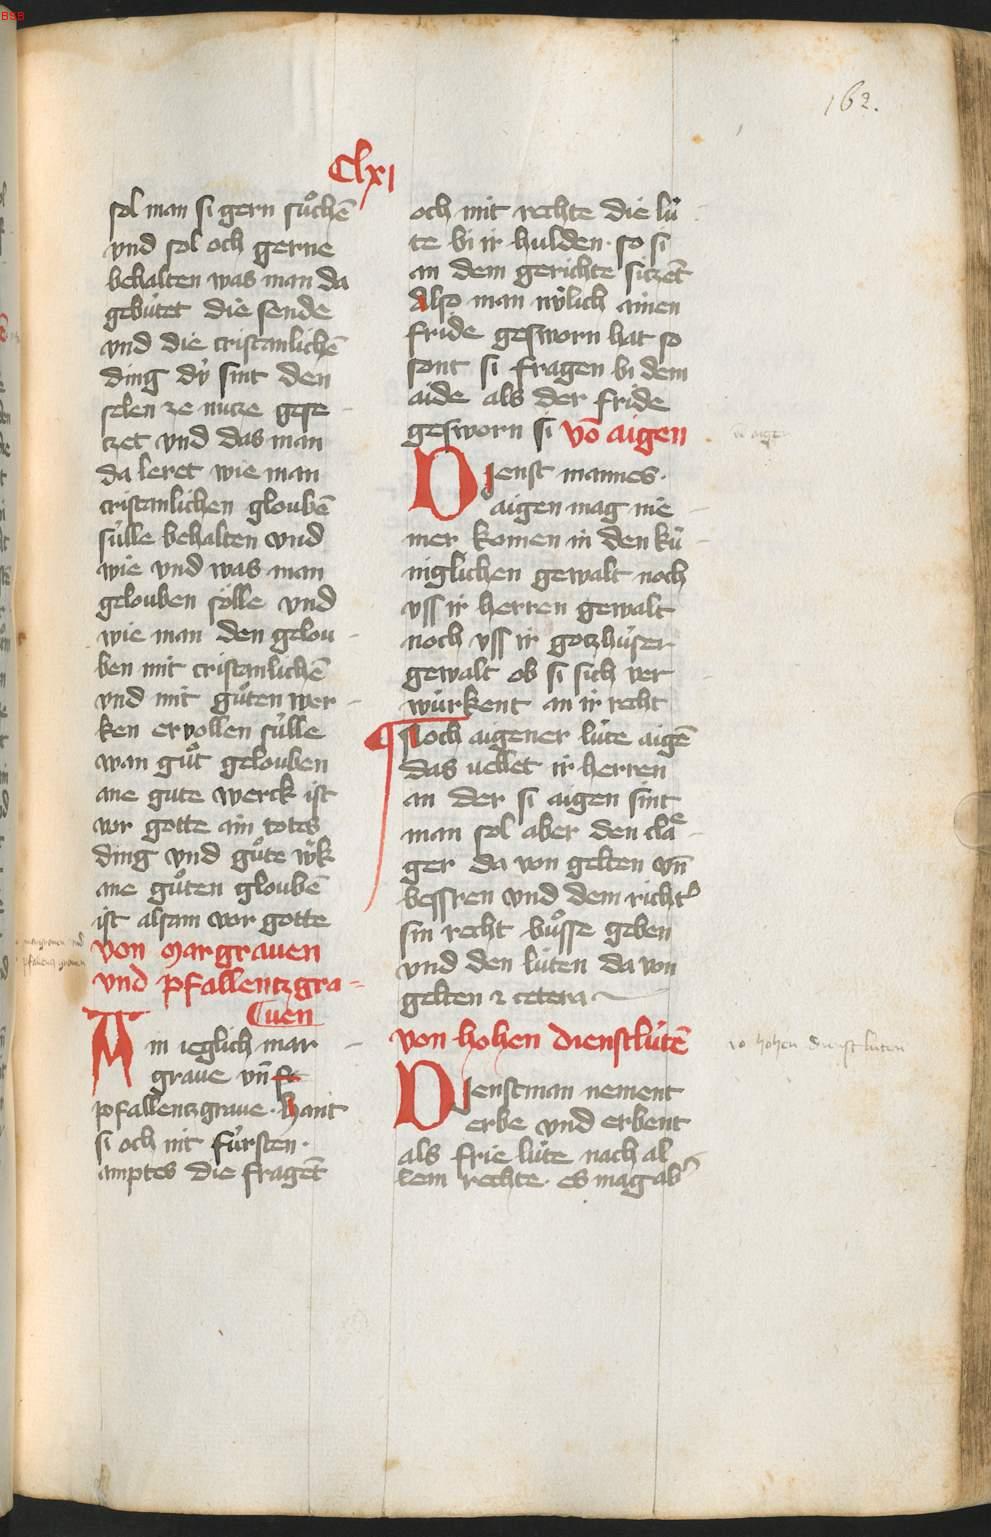 BSB
162.
Clxi
sol man si gern suͦchē
vnd sol och gerne
behalten was man da
gebútet die sende
vnd die cristanlichē
ding dy̍ sint den
selen ze nutze gese
tzet vnd das man
da leret wie man
cristanlichen gloubē
súlle behalten vnd
wie vnd was man
gelouben sölle vnd
wie man den gelou
ben mit cristanlichē
vnd mit guͦten wer
ken ervollen súlle
wan guͦt gelouben
ane gute werck ist
vor gotte ain totes
ding vnd guͦte wͤk
ane guͦten gloubē
ist alsam vor gotte
von Margrauen
vnd pfallentzgra
uen
Ain ieglich mar
graue vn̄
pfallentzgraue. hant
si och nit fúrsten.
amptes die fragēt
och mit rechte die lú
te bi ir hulden. so si
an dem gerichte sitzēt
Also man nv̍lich ainen
fride gesworn hat so
sont si fragen bi dem
aide als der fride
gesworn si vō aigen
Dienst mannes.
aigen mag nie
mer komen in den kú
niglichen gewalt noch
vss ir herren gewalt
noch vss ir gotzhúser
gewalt ob si sich ver
wúrkent an ir recht
Noch aigener lúte aigē
das vellet ir herren
an der si aigen sint
man sol aber den claͤ
ger da von gelten vn̄
bessren vnd dem richtͬ
sin recht buͦsse geben
vnd den lúten da von
gelten ⁊ cetera
von hohen dienstlútē
Dienstman nement
erbe vnd erbent
als frie lúte nach al
lem rechte. es mag abͬ
vō hohen dienstluten